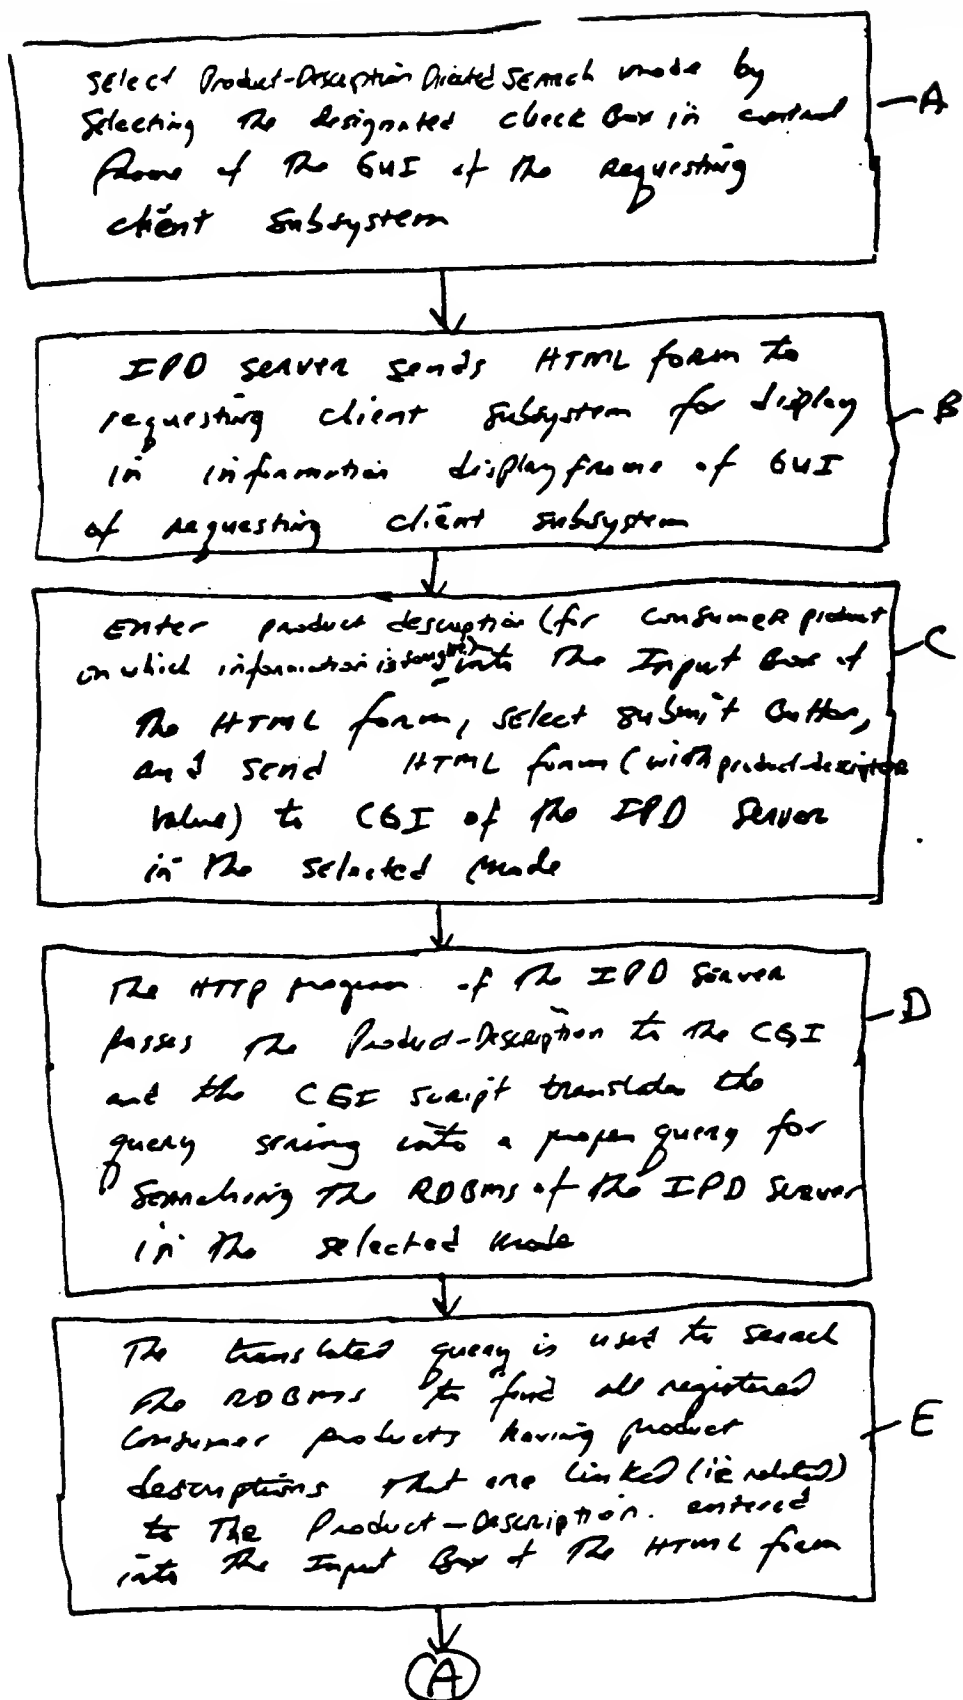 Select Product-Description Directed Search mode by
selecting the designated check Box in control
frame of the GUI of the requesting
client subsystem
A
IPD server sends HTML form to
requesting client subsystem for display
in information display frame of GUI
of requesting client subsystem
B
Enter product description (for consumer product
on which information is sought) into the Input Box of
the HTML form, select submit button,
and send HTML form (with product-descriptor
value) to CGI of the IPD Server
in the selected mode
C
The HTTP program of the IPD Server
passes the Product-Description to the CGI
and the CGI script translates the
query string into a proper query for
searching the RDBMS of the IPD Server
in the selected mode
D
The translated query is used to search
the RDBMS to find all registered
consumer products having product
descriptions that are linked (ie related)
to the Product-Description. entered
into the Input Box of the HTML form
E
A